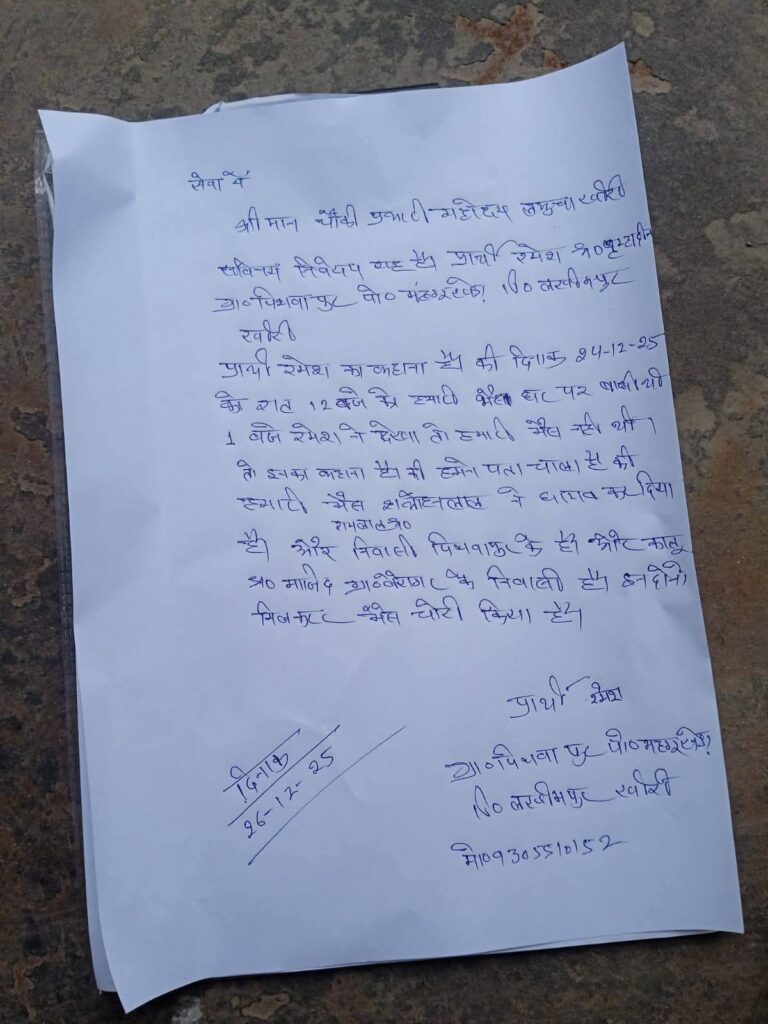 सेवा में
श्री मान चौकी प्रभारी महोदय खीरी
सविनय निवेदन यह है। प्रार्थी रमेश S/o
ग्रा० पिथवापुर पो० जि० लखीमपुर
खीरी
प्रार्थी रमेश का कहाना है। की दिनाक 24-12-25
को रात 12 बजे को हमारी भैस घर पर बाधी थी
1 बजे रमेश ने देखा तो हमारी भैस नही थी।
तो इनका कहाना है। की हमने पता चाला है की
हमारी भैस ने घायव कर दिया
है। और निवासी पिथवापुर के है। और कालू
S/o माजिद ग्रा० के निवासी है। इन दोनो
मिलकर भैस चोरी किया है।
प्रार्थी रमेश
ग्रा० पिथवा पुर पो०
जि० लखीमपुर खीरी
मो० 9305510152
दिनाक
26-12-25